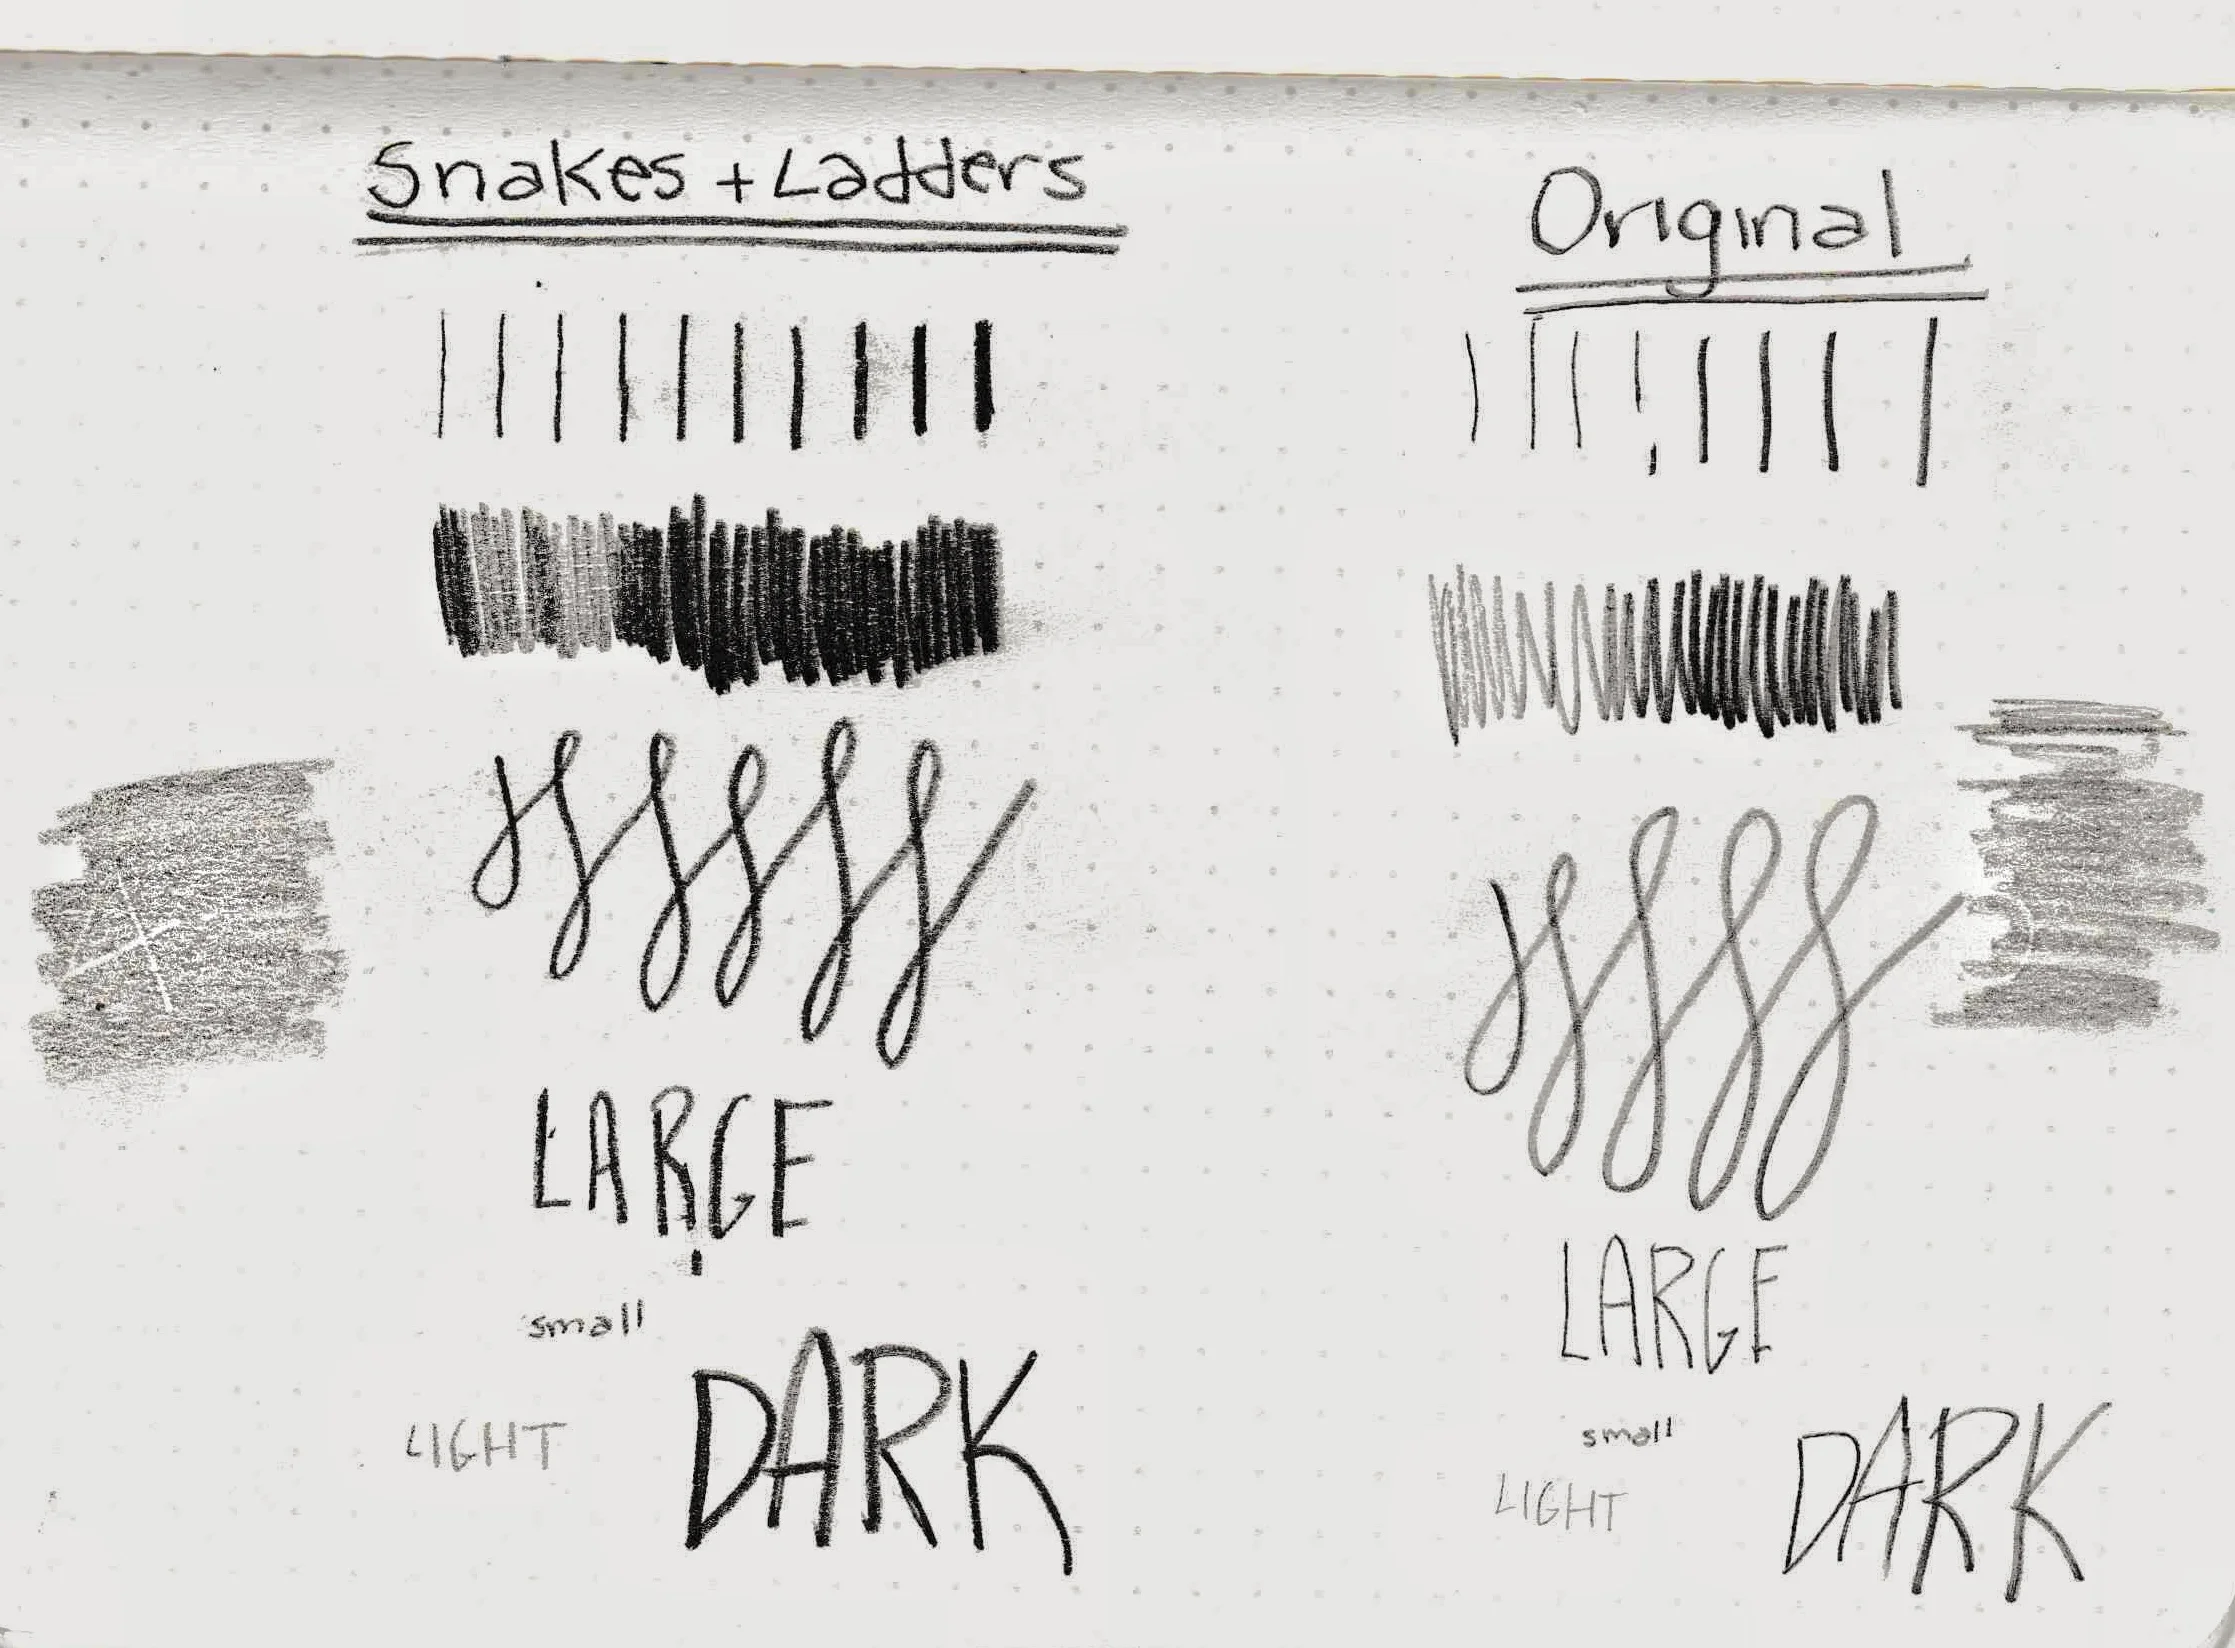 Snakes + Ladders
LARGE
small
LIGHT
DARK
Original
LARGE
small
LIGHT
DARK